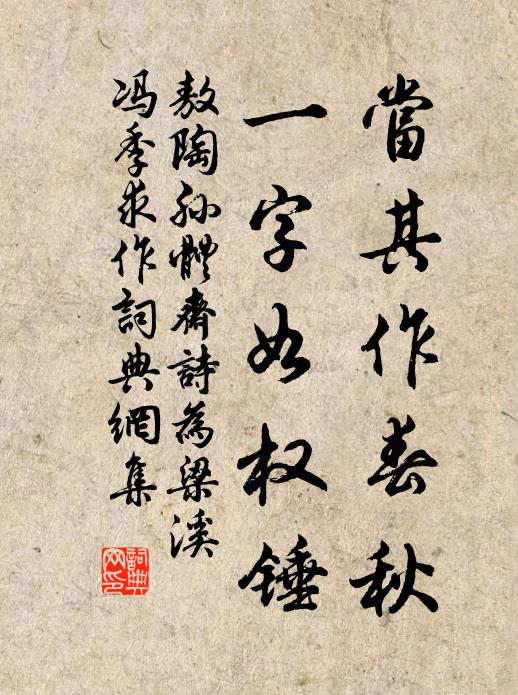 當其作春秋
一字如权锤
敖陶孙體齋詩為梁溪
冯季求作詞典網集
詞典网印